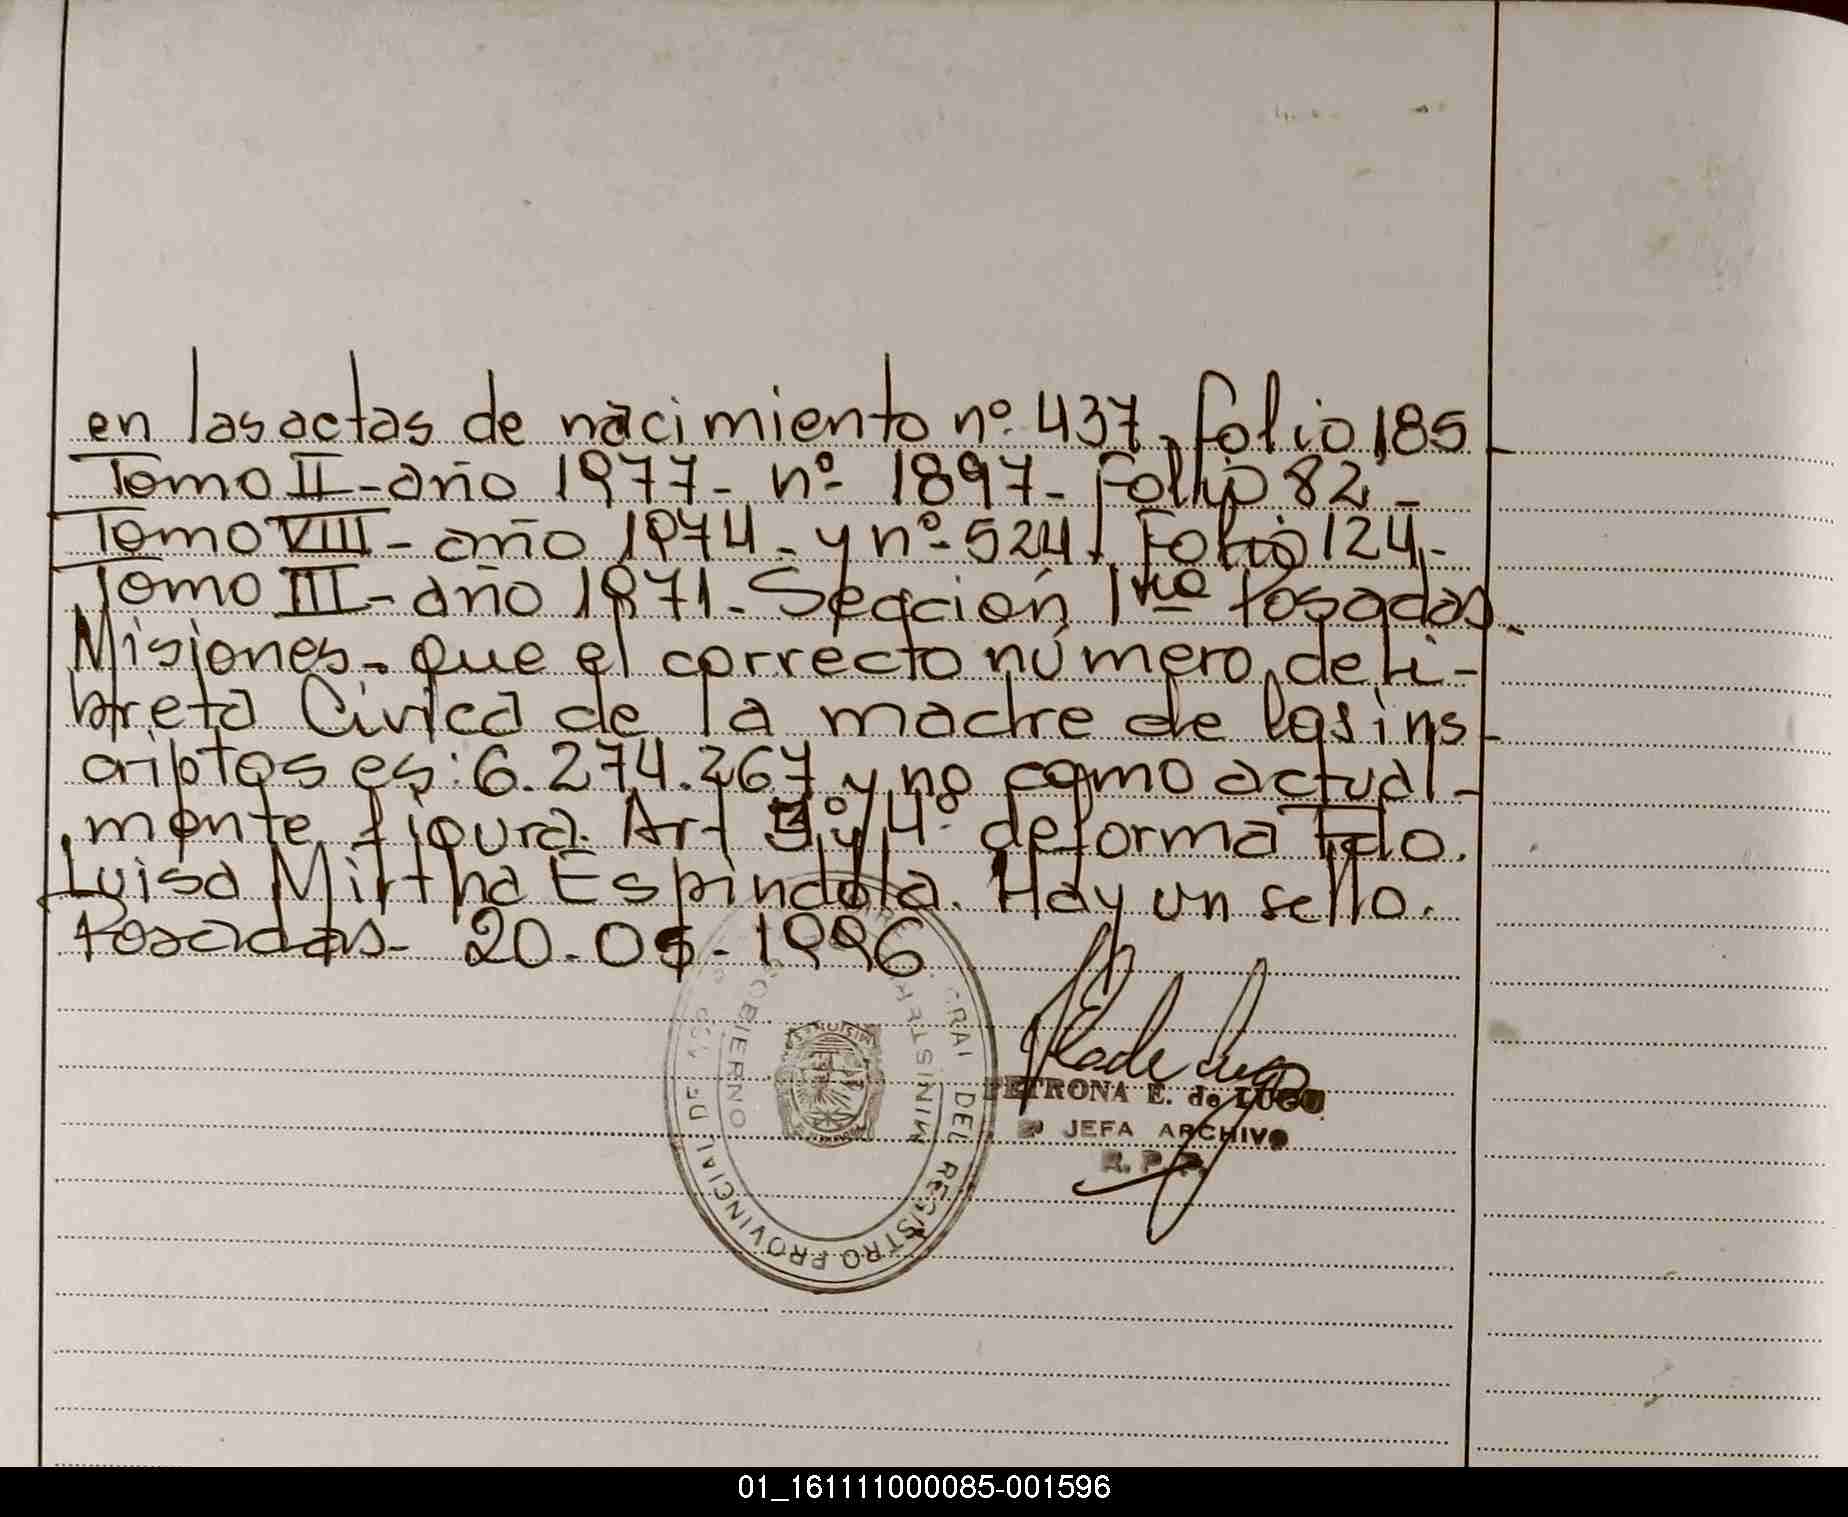 en las actas de nacimiento nº 437, folio 185
Tomo II - año 1977 - nº 1897 - Folio 82 -
Tomo VIII - año 1974 - y nº 524 - Folio 124 -
Tomo III - año 1971 - Sección 1ra Posadas.
Misiones - que el correcto número de Li-
breta Cívica de la madre de los ins-
criptos es: 6.274.267 y no como actual-
mente figura. Art 3º y 4º de forma Fdo.
Luisa Mirtha Espindola. Hay un sello.
Posadas - 20-05-1996
PETRONA E. de LUGO
JEFA ARCHIVO
R. P. P.
REGISTRO PROVINCIAL DE
MINISTERIO
GOBIERNO
MISIONES
01_161111000085-001596